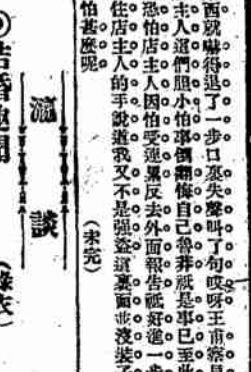 西就嚇得退了一步口裏失聲叫了句哎呀王甫察見
主人這們胆小怕事倒翻悔自己魯莽祇是事已至此
恐怕店主人因怕受連累反去外面報告祇好進一步
住店主人的手說道我又不是强盗這裏面並沒裝了
怕甚麽呢
（未完）
談